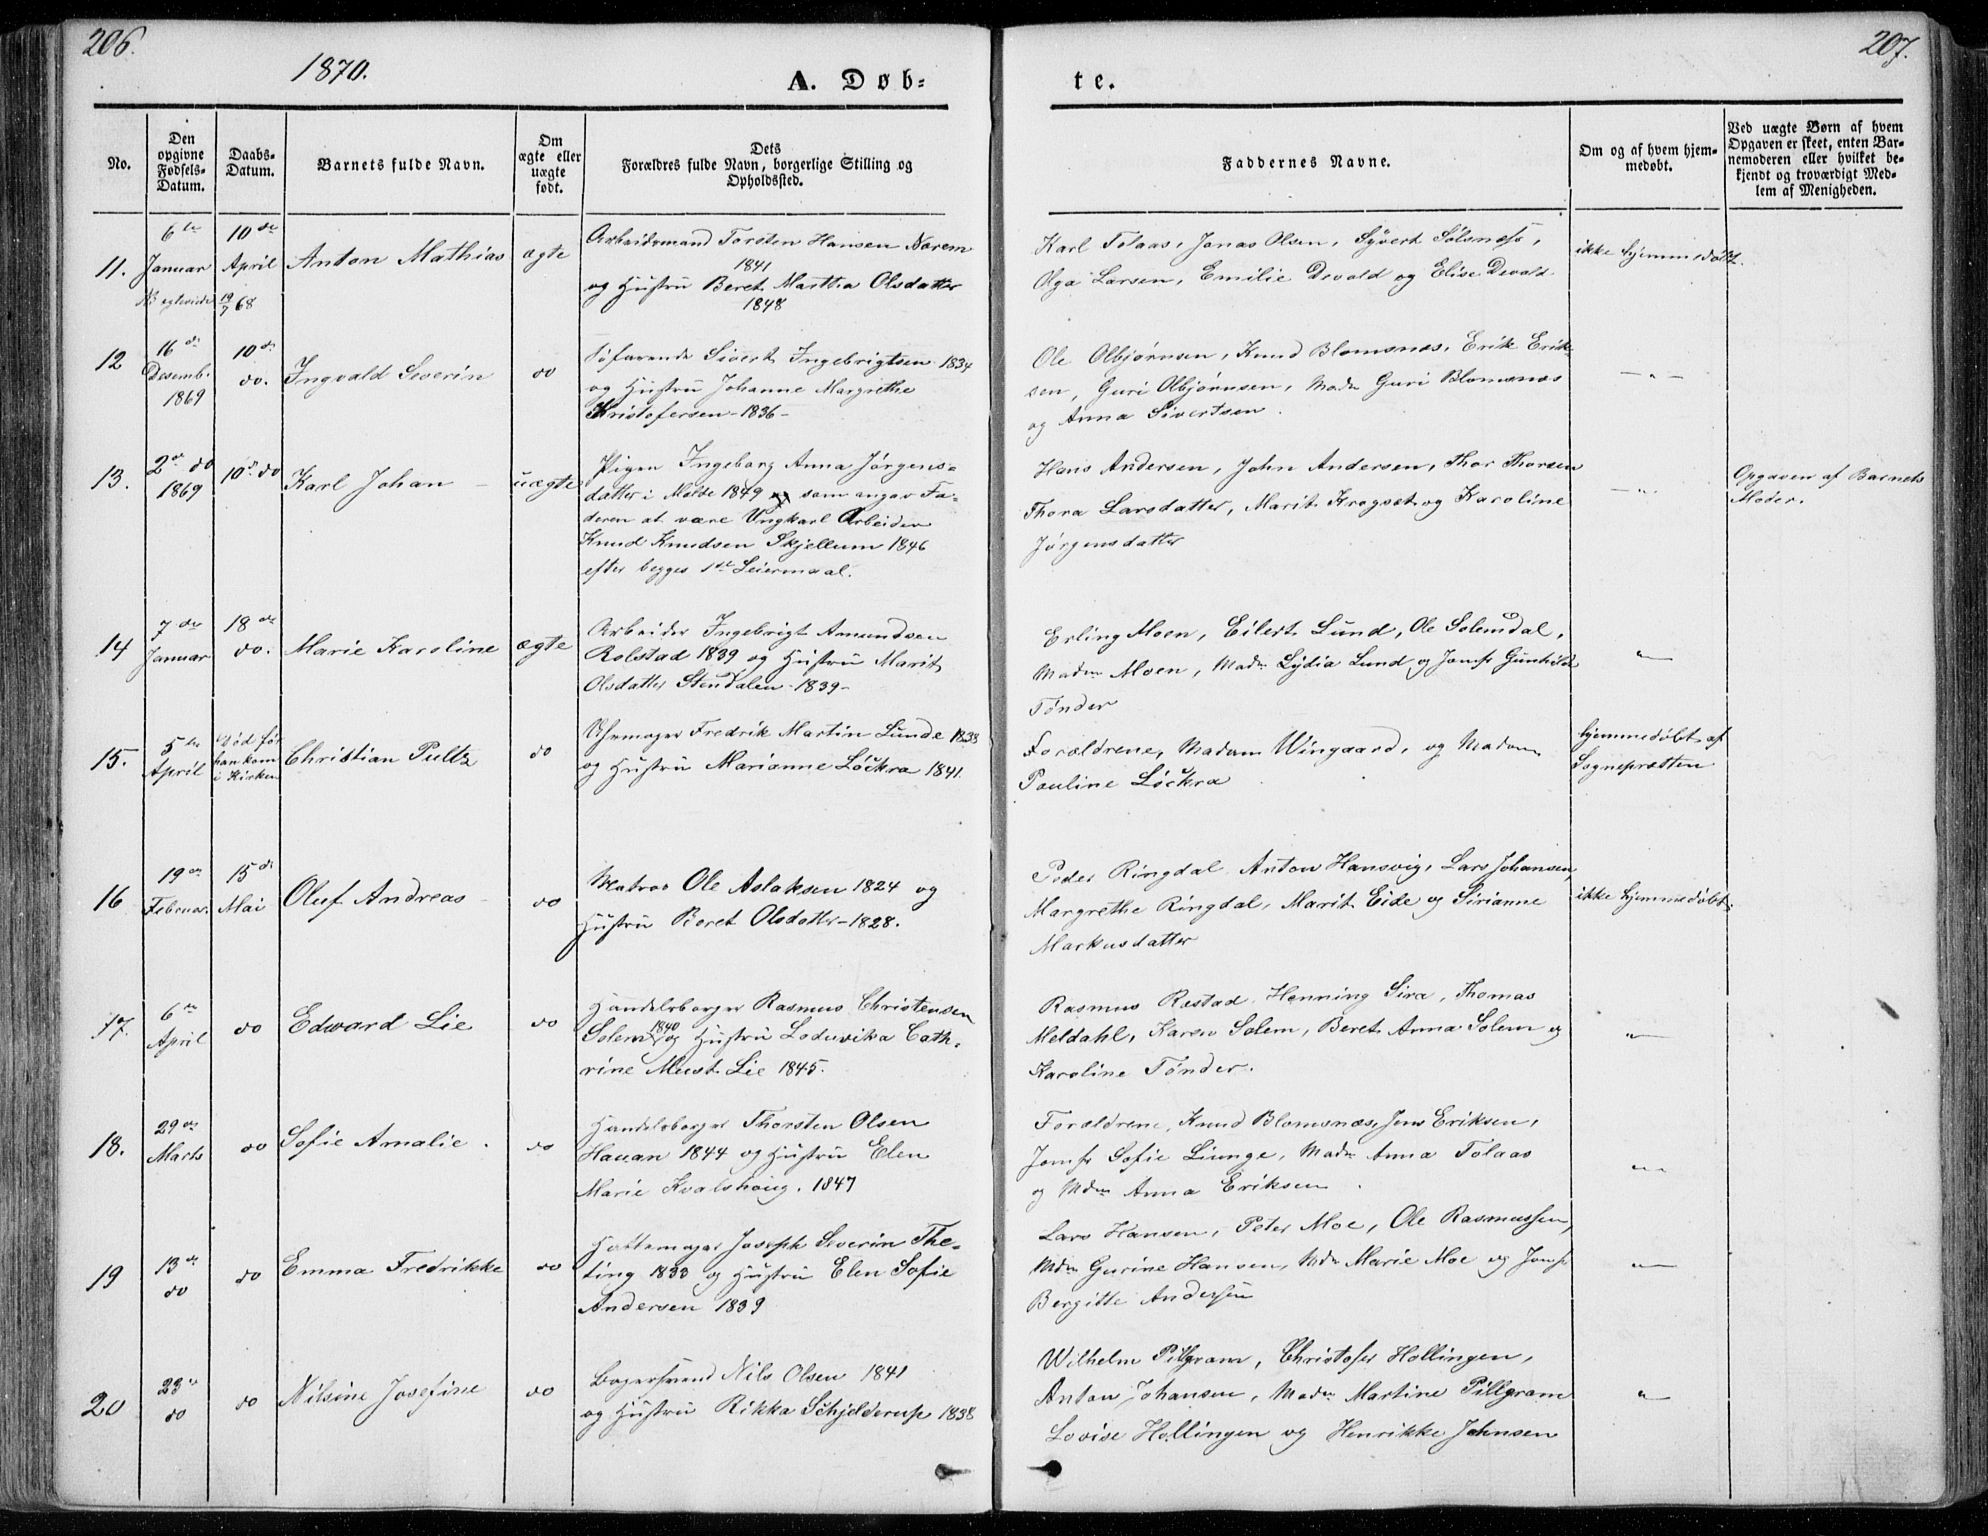 206.
207.
1870.
A. Døb-
te.
No.
Den opgivne Fødsels-Datum.
Daabs-Datum.
Barnets fulde Navn.
Om ægte eller uægte født.
Dets
Forældres fulde Navn, borgerlige Stilling og
Opholdssted.
Faddernes Navne.
Om og af hvem hjem-
medøbt.
Ved uægte Børn af hvem
Opgaven er skeet, enten Bar-
nemoderen eller hvilket be-
kjendt og troværdigt Med-
lem af Menigheden.
11. 6te Januar 10de April Anton Mathias ægte
19/7 68
Arbeidsmand Torsten Hansen Narem
1841
og Hustru Beret Martha Olsdatter
1848
Karl Tolaas, Jonas Olsen, Syvert Sølsnæss,
Olga Larsen, Emilie Devald og Elise Devald
ikke hjemmedøbt.
12 16de Desembr. 1869 10de do. Ingvald Severin do
Søfarende Sivert Ingebrigtsen 1834
og Hustru Johanne Margrethe
Kristofersen - 1836 -
Ole Olbjørnsen, Knud Blomsnæs, Erik Erik-
sen, Guri Olbjørnsen, Madm Guri Blomsnæs
og Anna Sivertsen.
— " —
13. 2de do 1869 10de do Karl Johan - uægte
Pigen Ingeborg Anna Jørgens-
datter i Molde 1849 som angav Fa-
deren at være Ungkarl Arbeider
Knud Knudsen Skjellum 1846
efter begges 1ste Leiermaal.
Hans Andersen, John Andersen, Thor Thorsen
Thora Larsdatter, Marit Krogset og Karoline
Jørgensdatter
— " —
Opgaven af Barnets
Moder.
14 7de Januar 18de do. Marie Karoline ægte
Arbeider Ingebrigt Amundsen
Rolstad 1839 og Hustru Marit
Olsdatter Stendalen - 1839 -
Erling Moen, Eilert Lund, Ole Solemdal,
Madm Moen, Madm Lydia Lund og Jomfr Gunhilde
Tønder
"
15. 5te April Død før han kom i Kirken Christian Pultz do
Uhrmager Fredrik Martin Lunde 1838
og Hustru Marianne Løckra 1841.
Forældrene, Madam Wingaard, og Madam
Pauline Løckra
hjemmedøbt af
Sognepræsten
16 19de Februar. 15de Mai Oluf Andreas - do
Matros Ole Aslaksen 1824 og
Hustru Beret Olsdatter - 1828.
Peder Ringdal, Anton Hansvig, Lars Johansen,
Margrethe Ringdal, Marit Eide og Sirianne
Markusdatter
ikke hjemmedøbt.
17. 6te April do Edward Lie do
Handelsborger Rasmus Christensen
Solem 1840 og Hustru Lodovika Cath-
rine Must Lie 1845.
Rasmus Rostad, Henning Sira, Thomas
Meldahl, Karen Solem, Beret Anna Solem og
Karoline Tønder.
"
18. 29de Marts do Sofie Amalie. do
Handelsborger Thorsten Olsen
Hauan 1844 og Hustru Elen
Marie Kvalshoug. 1847
Forældrene, Knud Blomsnæs, Jens Eriksen,
Jomfr Sofie Liunge, Madm Anna Tolaas
og Mdm Anna Eriksen.
"
19 13de do do Emma Fredrikke do
Hattemager Joseph Severin The-
ting 1833 og Hustru Elen Sofie
Andersen 1839
Lars Hansen, Peter Moe, Ole Rasmussen,
Mdm Gurine Hansen, Mdm Marie Moe og Jomfr
Bergitte Andersen
"
20 23de do do Nilsine Josefine do
Bagersvend Nils Olsen 1841
og Hustru Rikka Schjelderup 1838
Wilhelm Pillgram, Christofer Hollingen,
Anton Johansen, Madm Martine Pillgram
Lovise Hollingen og Henrikke Johnsen
"